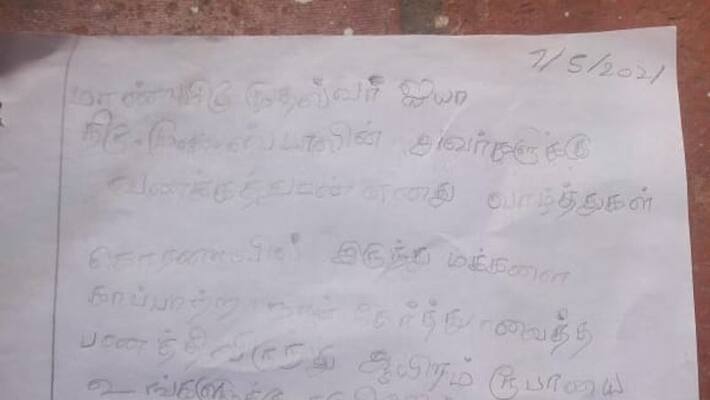 7/5/2021
மாண்புமிகு முதல்வர் ஐயா
திரு. முக. ஸ்டாலின் அவர்களுக்கு
வணக்கத்துடன் எனது வாழ்த்துகள்
கொரணாவில் இருந்து மக்களை
காப்பாற்ற நான் சேர்த்து வைத்த
பணத்திலிருந்து ஆயிரம் ரூபாயை
உங்களுக்கு